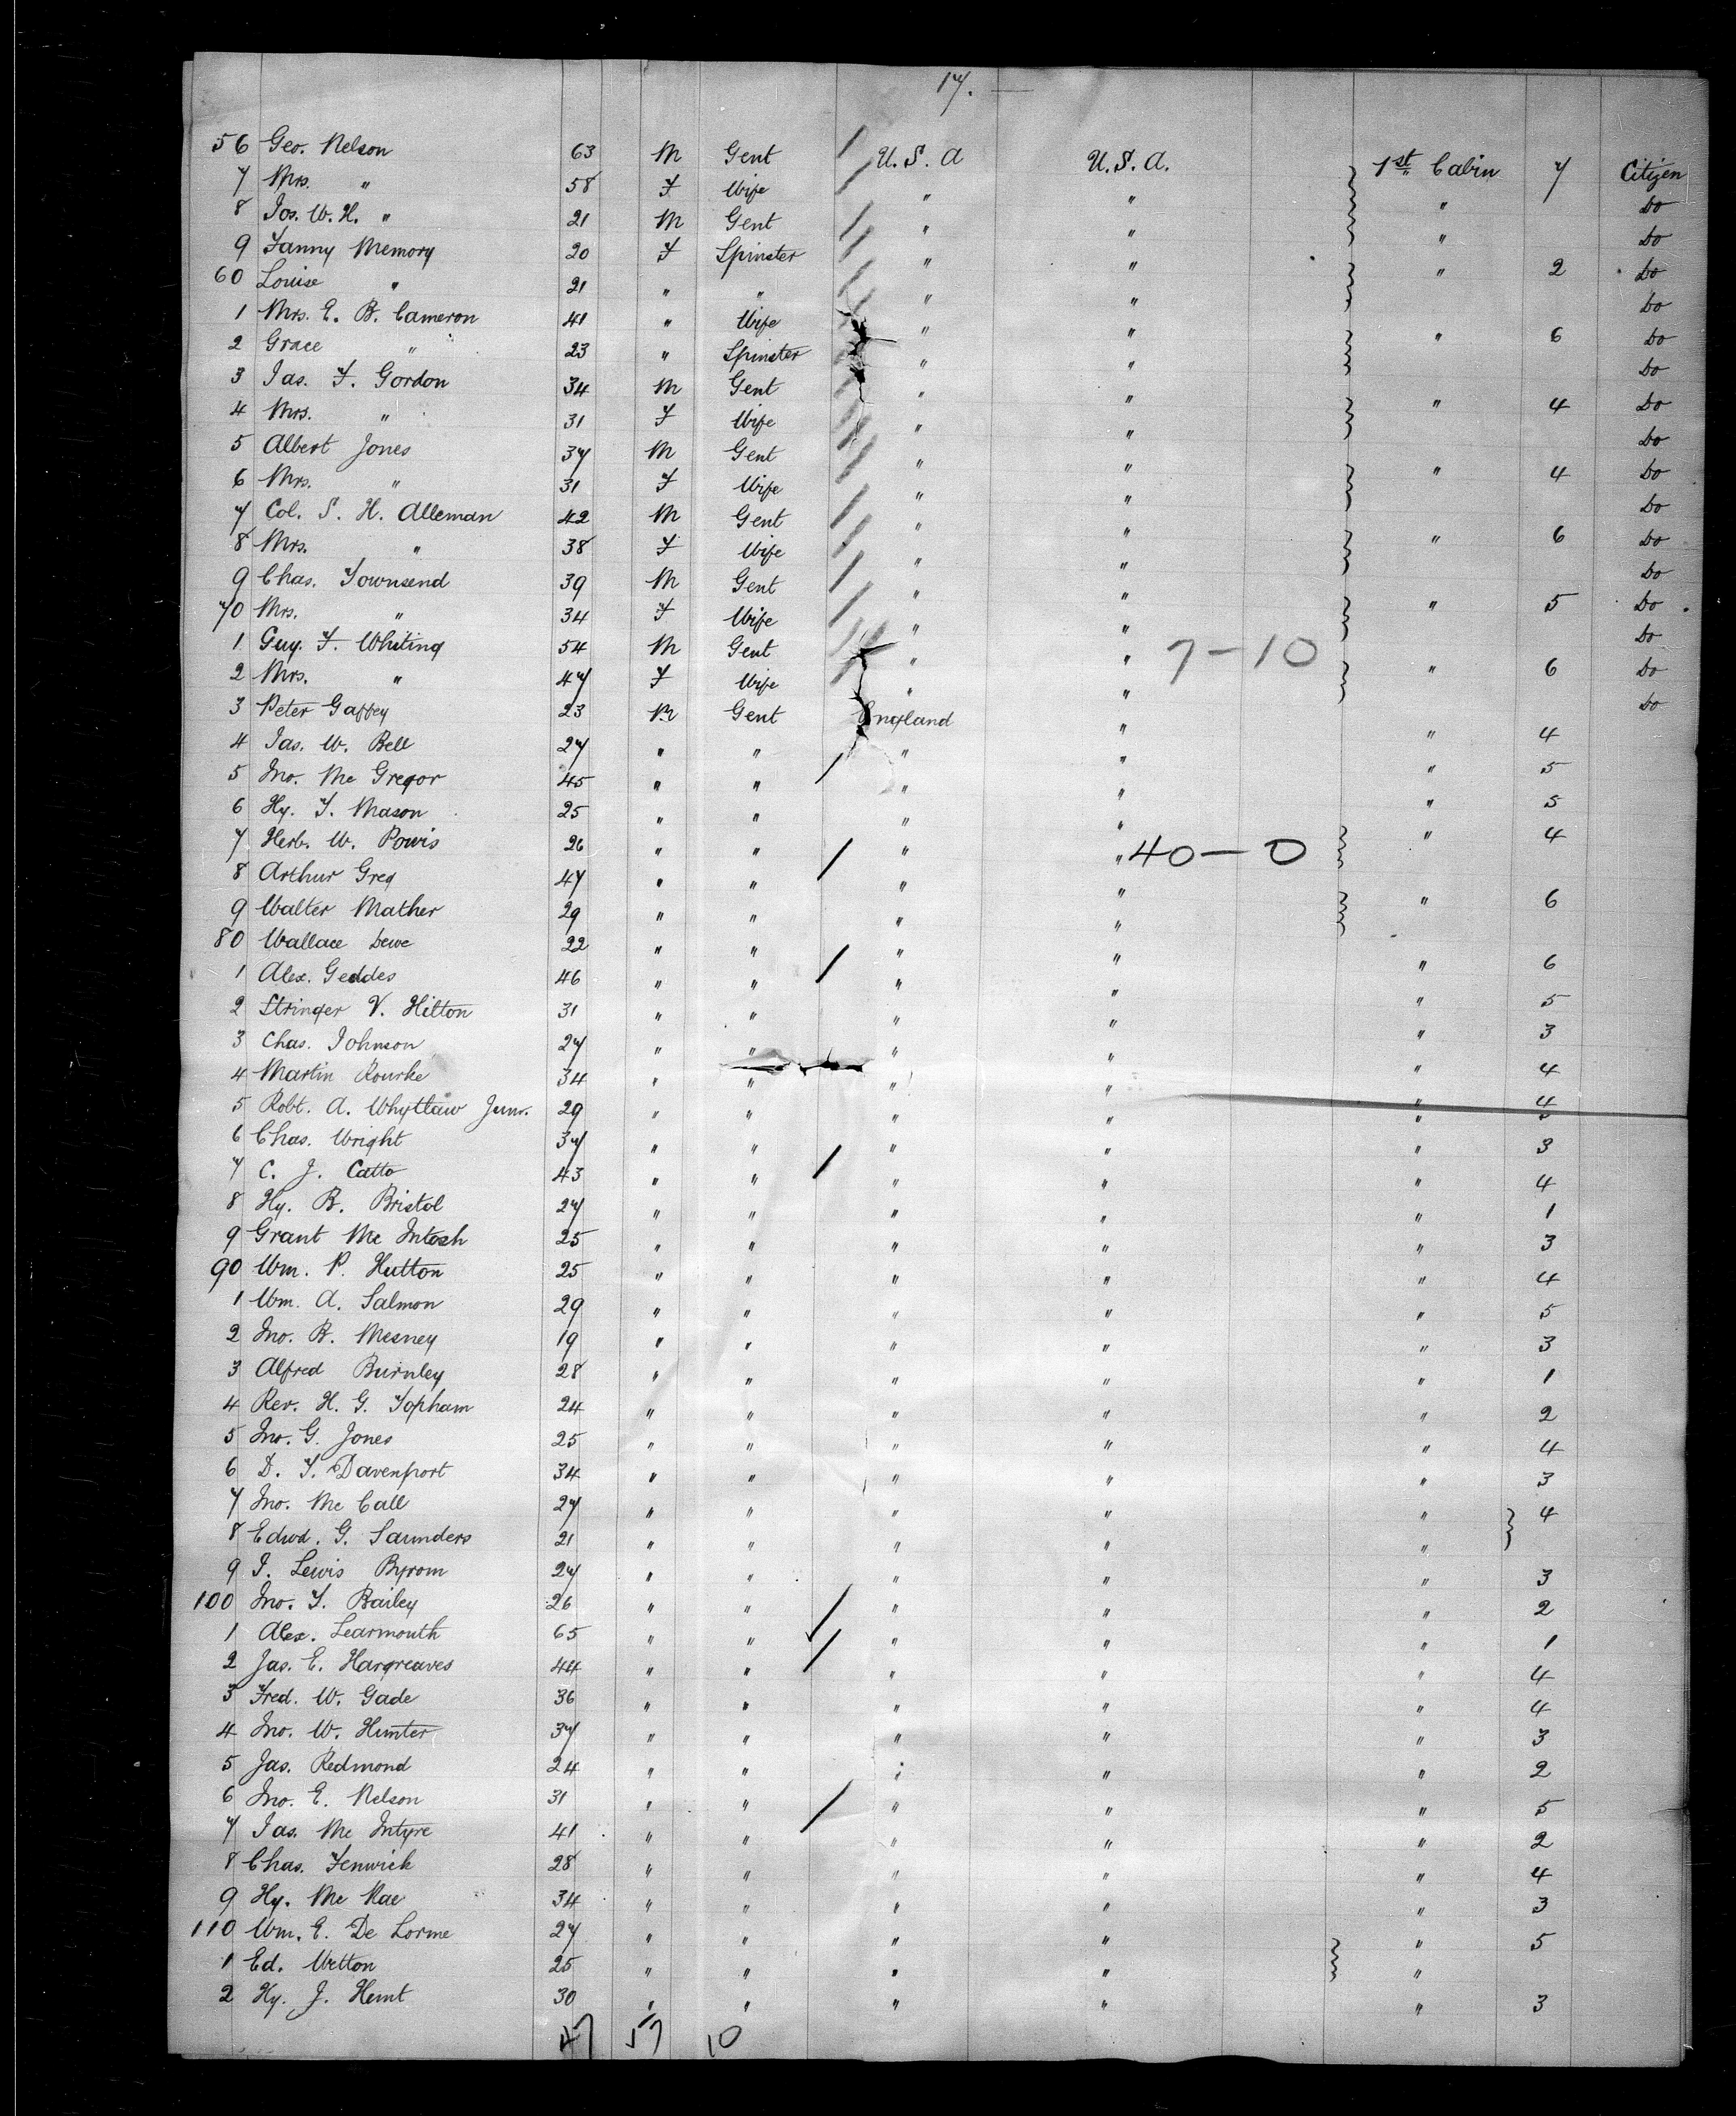 17.
56 Geo. Nelson 63 M Gent U.S.A U.S.A. 1st Cabin 7 Citizen
7 Mrs. " 58 F Wife " " " Do
8 Jos. W. H. " 21 M Gent " " " Do
9 Fanny Memory 20 F Spinster " " " 2 Do
60 Louise " 21 " " " " Do
1 Mrs. E. B. Cameron 41 " Wife " " " 6 Do
2 Grace " 23 " Spinster " " Do
3 Jas. F. Gordon 34 M Gent " " " 4 Do
4 Mrs. " 31 F Wife " " Do
5 Albert Jones 37 M Gent " " " 4 Do
6 Mrs. " 31 F Wife " " Do
7 Col. S. H. Alleman 42 M Gent " " " 6 Do
8 Mrs. " 38 F Wife " " Do
9 Chas. Townsend 39 M Gent " " " 5 Do
70 Mrs. " 34 F Wife " " Do
1 Guy. F. Whiting 54 M Gent " " 7-10 " 6 Do
2 Mrs. " 47 F Wife " " Do
3 Peter Gaffey 23 M Gent England " " 4
4 Jas. W. Bell 27 " " " " " 5
5 Jno. Mc Gregor 45 " " " " " 5
6 Hy. T. Mason 25 " " " " " 4
7 Herb. W. Powis 26 " " " " 40-0
8 Arthur Greg 47 " " " " " 6
9 Walter Mather 29 " " " "
80 Wallace Dewe 22 " " " " " 6
1 Alex. Geddes 46 " " " " " 5
2 Stringer V. Hilton 31 " " " " " 3
3 Chas. Johnson 27 " " " " " 4
4 Martin Rourke 34 " " " " " 4
5 Robt. A. Whytlaw Junr. 29 " " " " "
6 Chas. Wright 37 " " " " " 3
7 C. J. Catto 43 " " " " " 4
8 Hy. B. Bristol 27 " " " " " 1
9 Grant Mc Intosh 25 " " " " " 3
90 Wm. P. Hutton 25 " " " " " 4
1 Wm. A. Salmon 29 " " " " " 5
2 Jno. B. Mesney 19 " " " " " 3
3 Alfred Burnley 28 " " " " " 1
4 Rev. H. G. Topham 24 " " " " " 2
5 Jno. G. Jones 25 " " " " " 4
6 D. T. Davenport 34 " " " " " 3
7 Jno. Mc Call 27 " " " " " 4
8 Edwd. G. Saunders 21 " " " " "
9 J. Lewis Byrom 27 " " " " " 3
100 Jno. T. Bailey 26 " " " " " 2
1 Alex. Learmouth 65 " " " " " 1
2 Jas. E. Hargreaves 44 " " " " " 4
3 Fred. W. Gade 36 " " " " " 4
4 Jno. W. Hunter 37 " " " " " 3
5 Jas. Redmond 24 " " " " " 2
6 Jno. E. Nelson 31 " " " " " 5
7 Jas. Mc Intyre 41 " " " " " 2
8 Chas. Fenwick 28 " " " " " 4
9 Hy. Mc Rae 34 " " " " " 3
110 Wm. E. De Lorme 27 " " " " " 5
1 Ed. Witton 25 " " " " "
2 Hy. J. Hemt 30 " " " " " 3
47 57 10